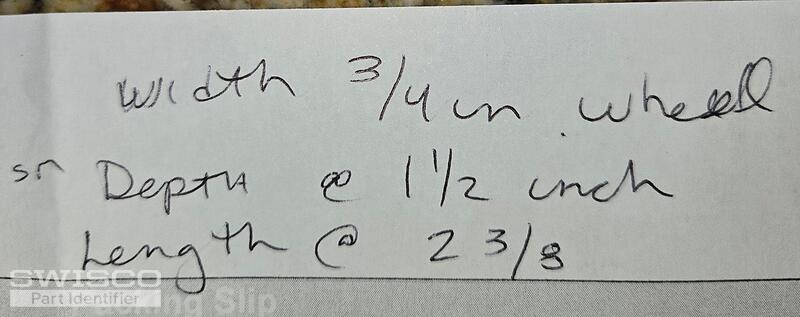 Width 3/4 in wheel
sn Depth @ 1 1/2 inch
Length @ 2 3/8
SWISCO
Part Identifier
Packing Slip